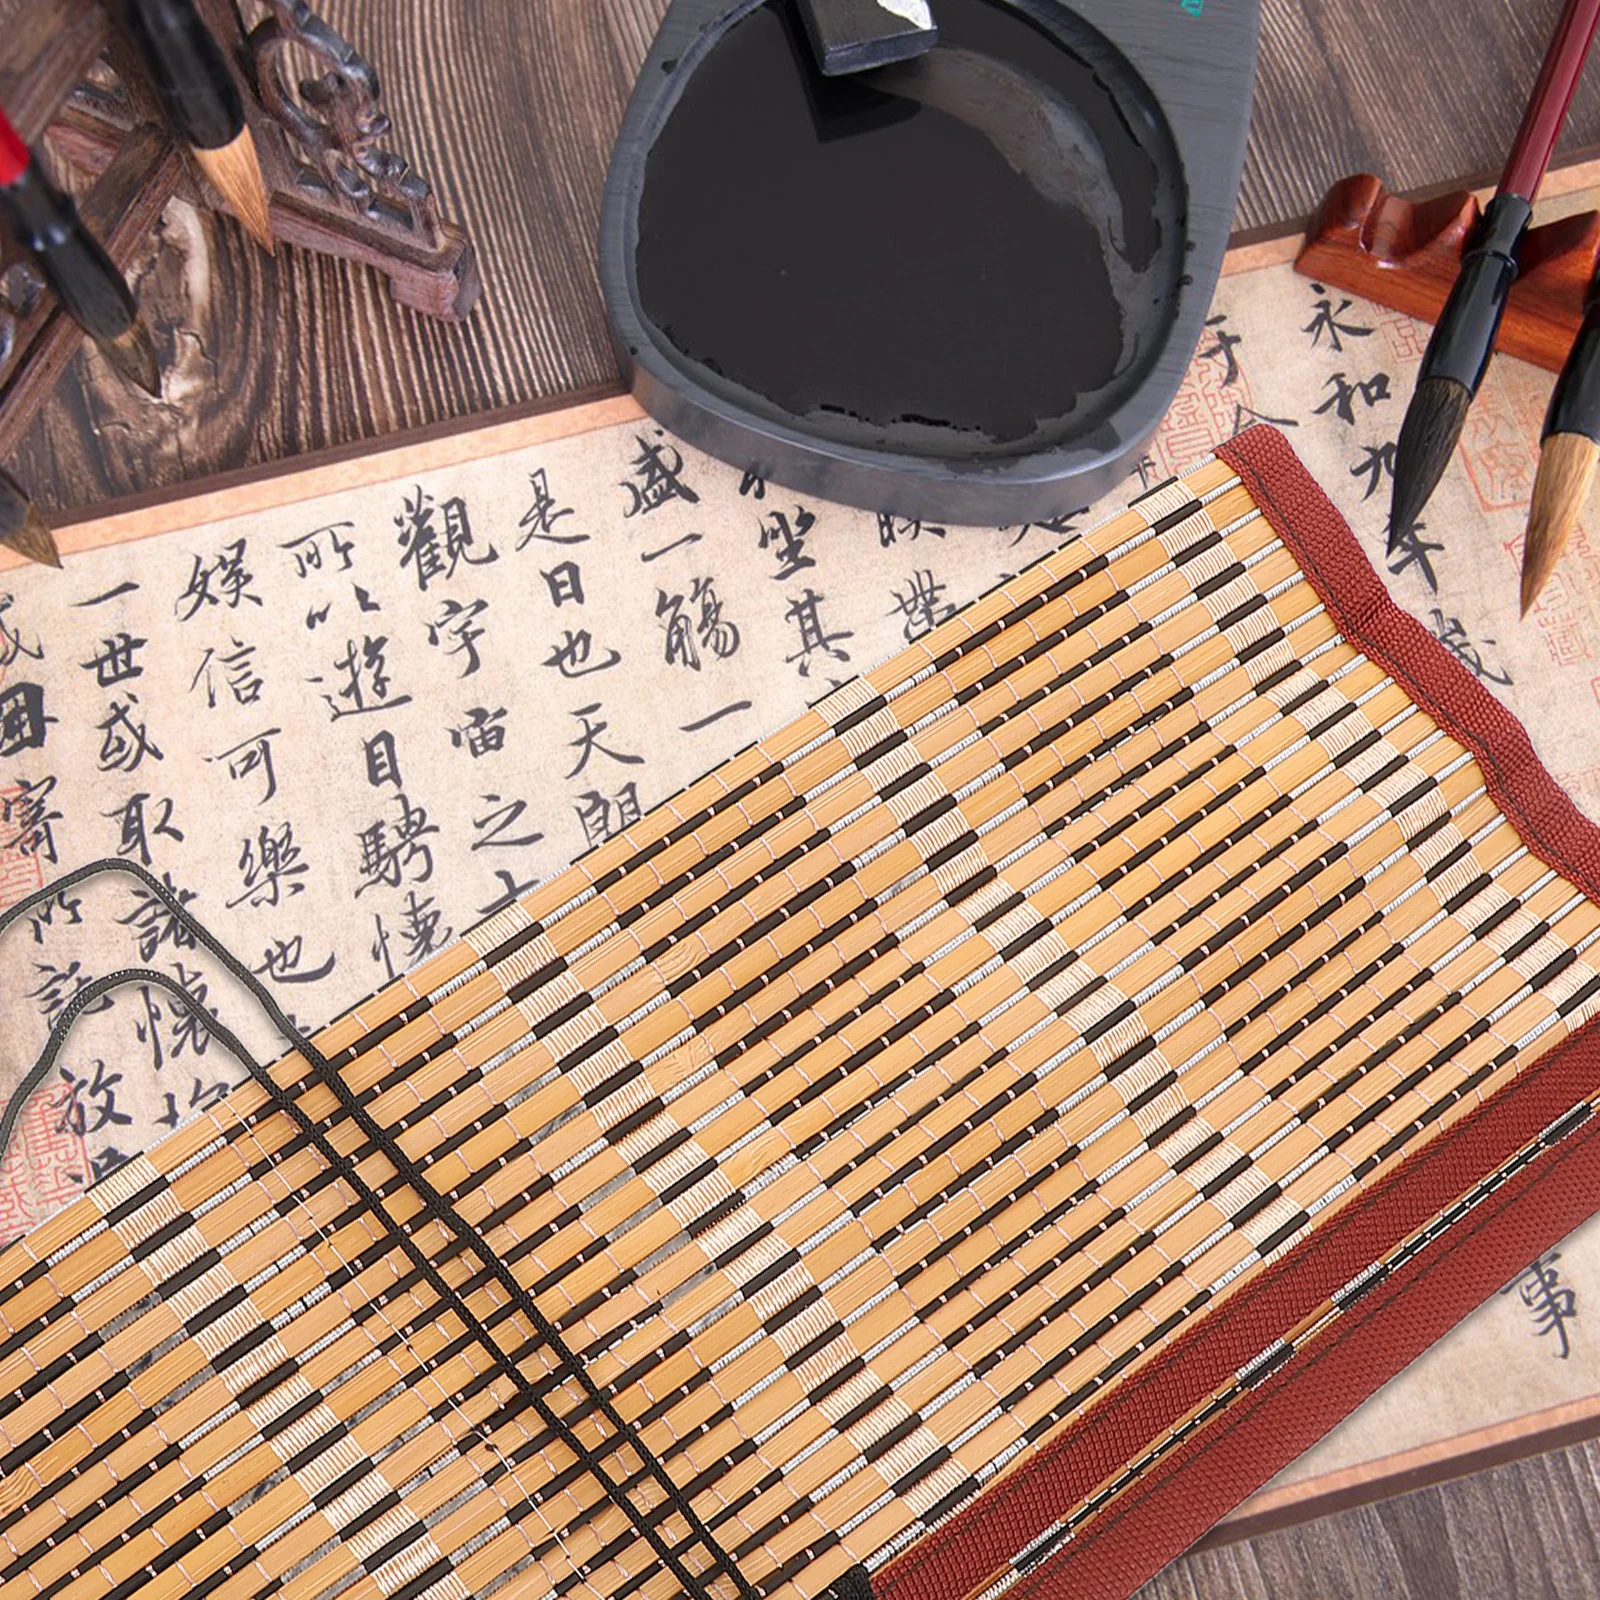 永和九年歲
于
事
映帶
坐其
盛一觴一
是日也天朗
觀宇宙之
所以遊目騁懷
娛信可樂也
一世或取諸懷
因寄所託放